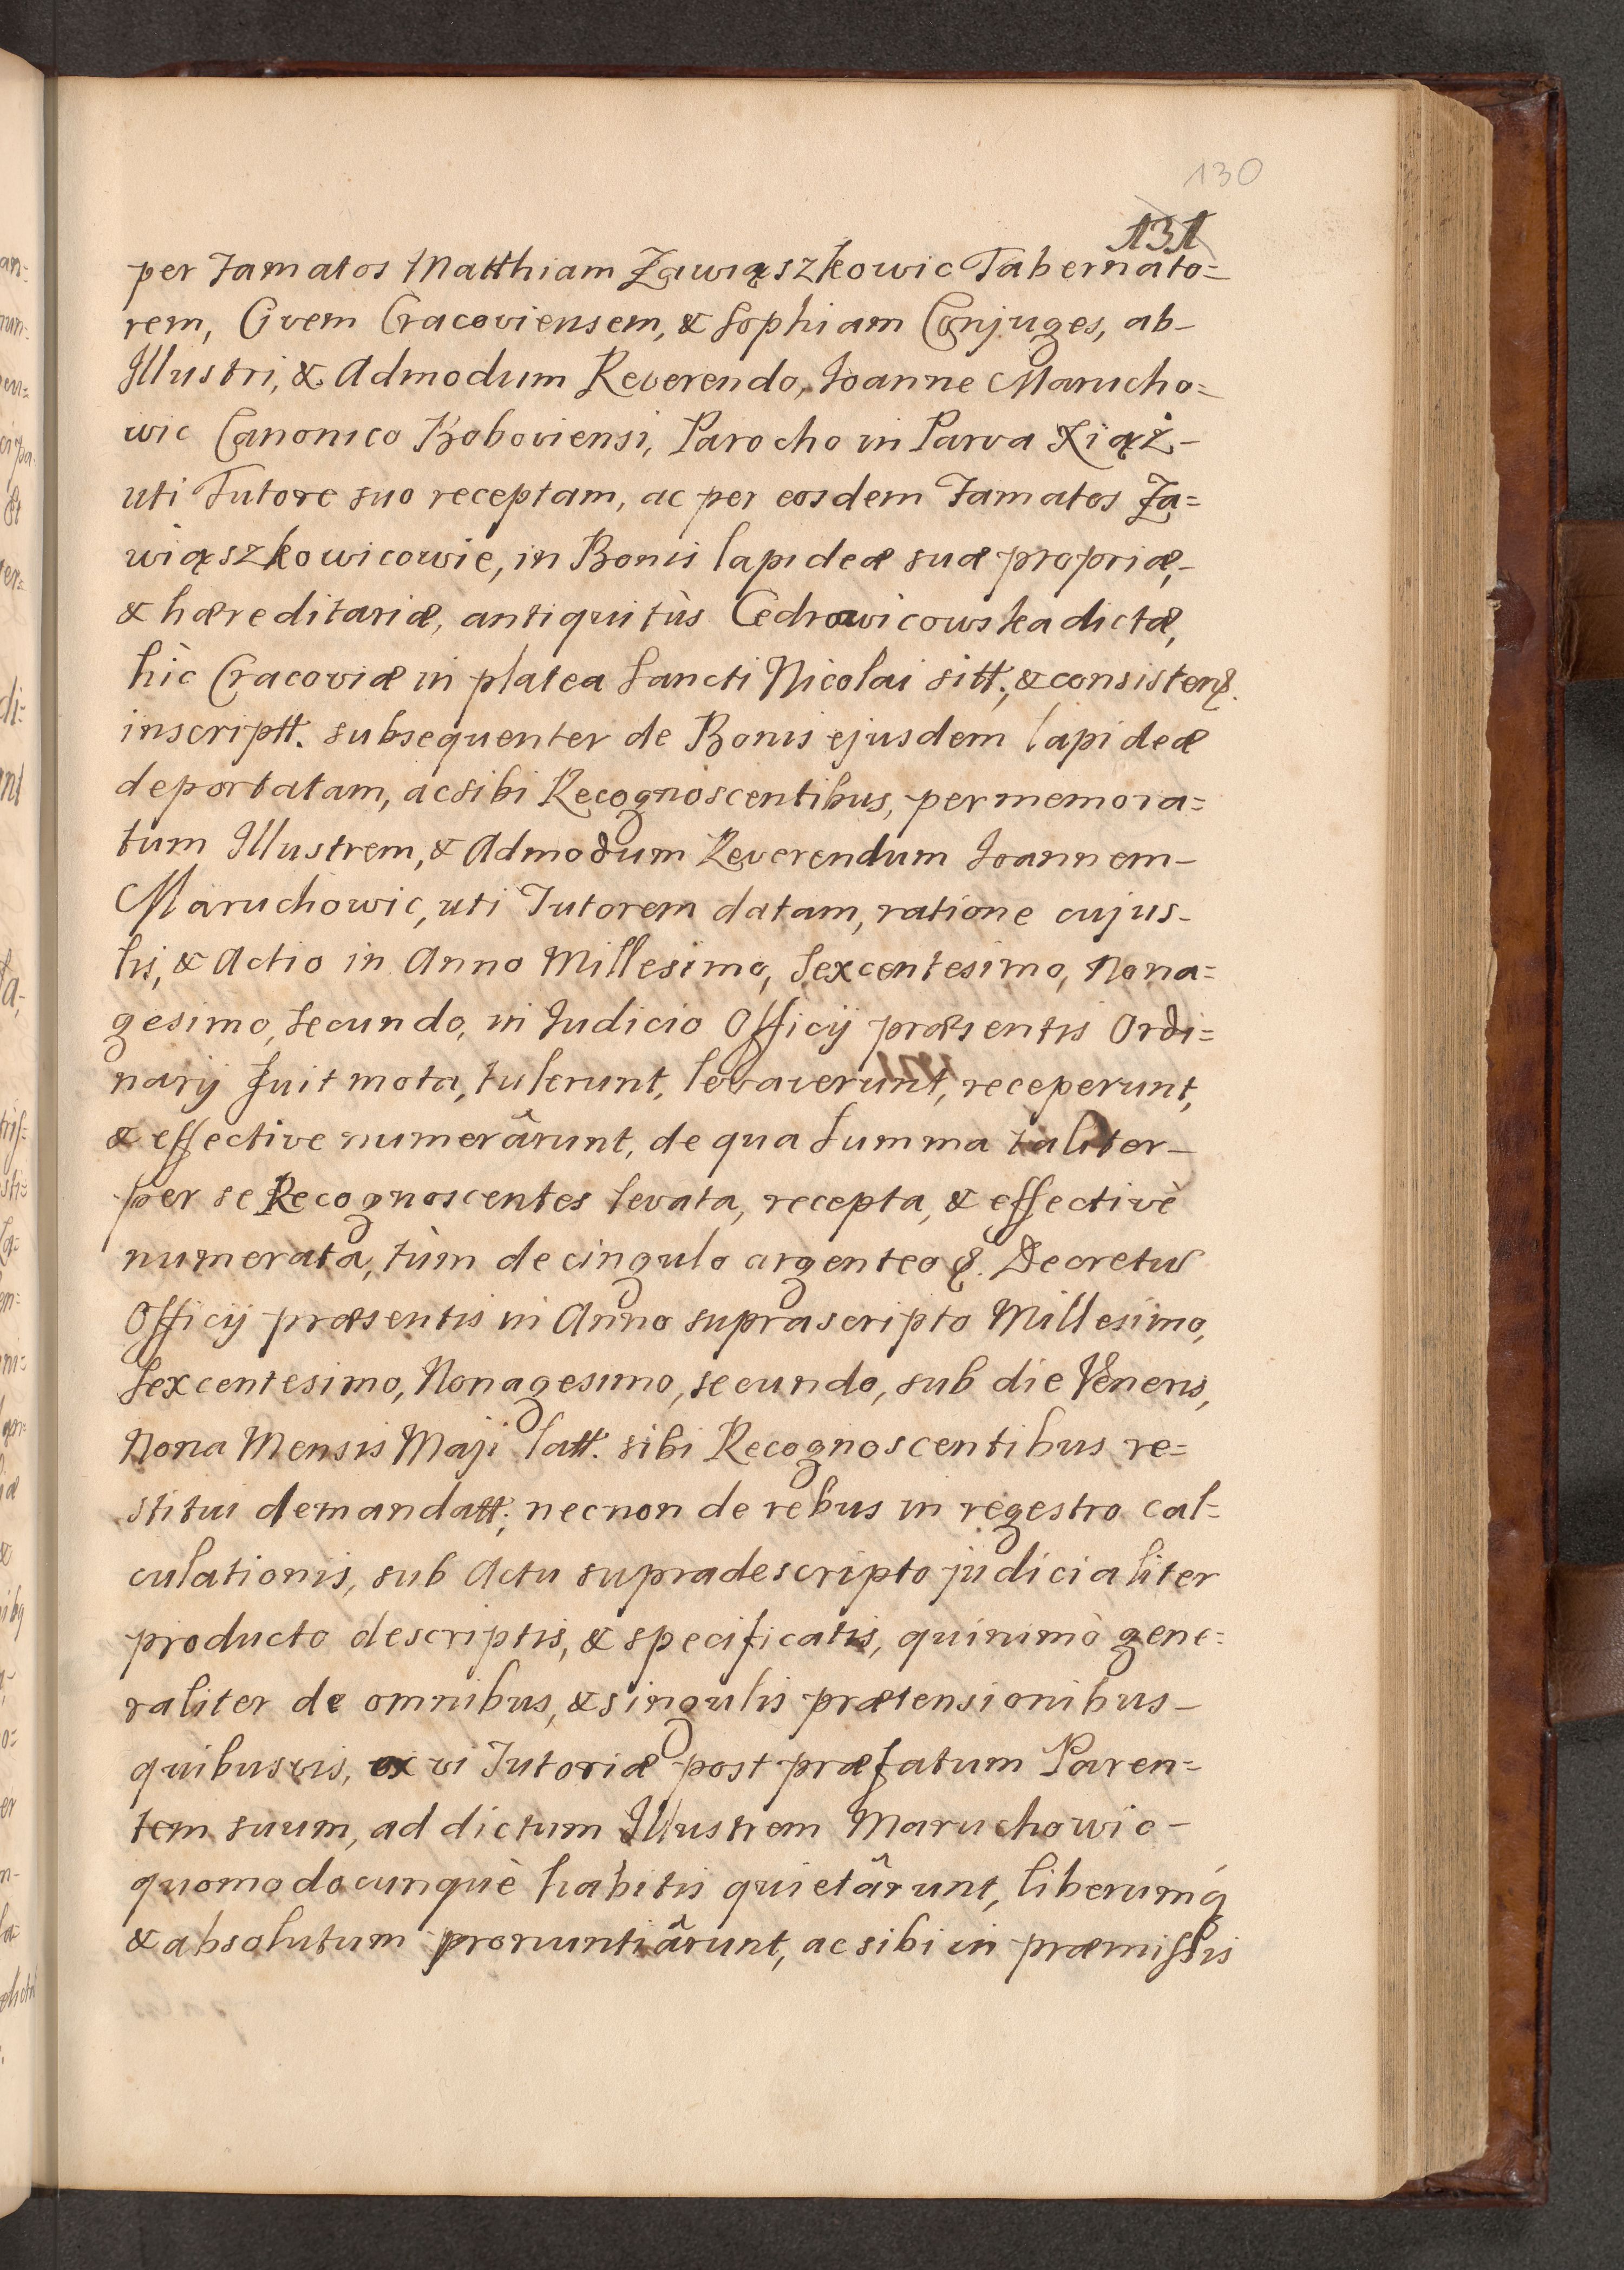 130
131
per Famatos Matthiam Zawiąszkowic Tabernato=
rem, Civem Cracoviensem, & Sophiam Conjuges, ab-
Illustri, & Admodum Reverendo, Joanne Marucho=
wic Canonico Boboviensi, Parocho in Parva Xiąż-
uti Tutore suo receptam, ac per eosdem Famatos Za=
wiąszkowicowie, in Bonis lapideæ suæ propriæ,-
& hæreditariæ, antiquitùs Cedrowicowska dictæ,
hìc Cracoviæ in platea Sancti Nicolai sitt., & consisten.
inscriptt. subsequenter de Bonis ejusdem lapideæ
deportatam, ac sibi Recognoscentibus, per memora=
tum Illustrem, & Admodum Reverendum Joannem-
Maruchowic, uti Tutorem datam, ratione cujus-
lis, & Actio in Anno Millesimo, Sexcentesimo, Nona=
gesimo, Secundo, in Judicio Officij præsentis Ordi=
narij fuit mota, tulerunt, levaverunt, receperunt,
& effective numerârunt, de qua Summa taliter-
per se Recognoscentes levata, recepta, & effectivè
numerata, tùm de cingulo argenteo &. Decretis
Officij præsentis in Anno suprascripto Millesimo,
Sexcentesimo, Nonagesimo, secundo, sub die Veneris,
Nona Mensis Maji latt. sibi Recognoscentibus re=
stitui demandatt., necnon de rebus in regestro cal=
culationis, sub Actu supradescripto judicialiter
producto descriptis, & specificatis, quinimò gene=
raliter de omnibus, & singulis prætensionibus-
quibusvis, ex vi Tutoriæ post præfatum Paren=
tem suum, ad dictum Illustrem Maruchowic-
quomodocunquè habitis quietârunt, liberumq́
& absolutum pronuntiârunt, ac sibi in præmissis